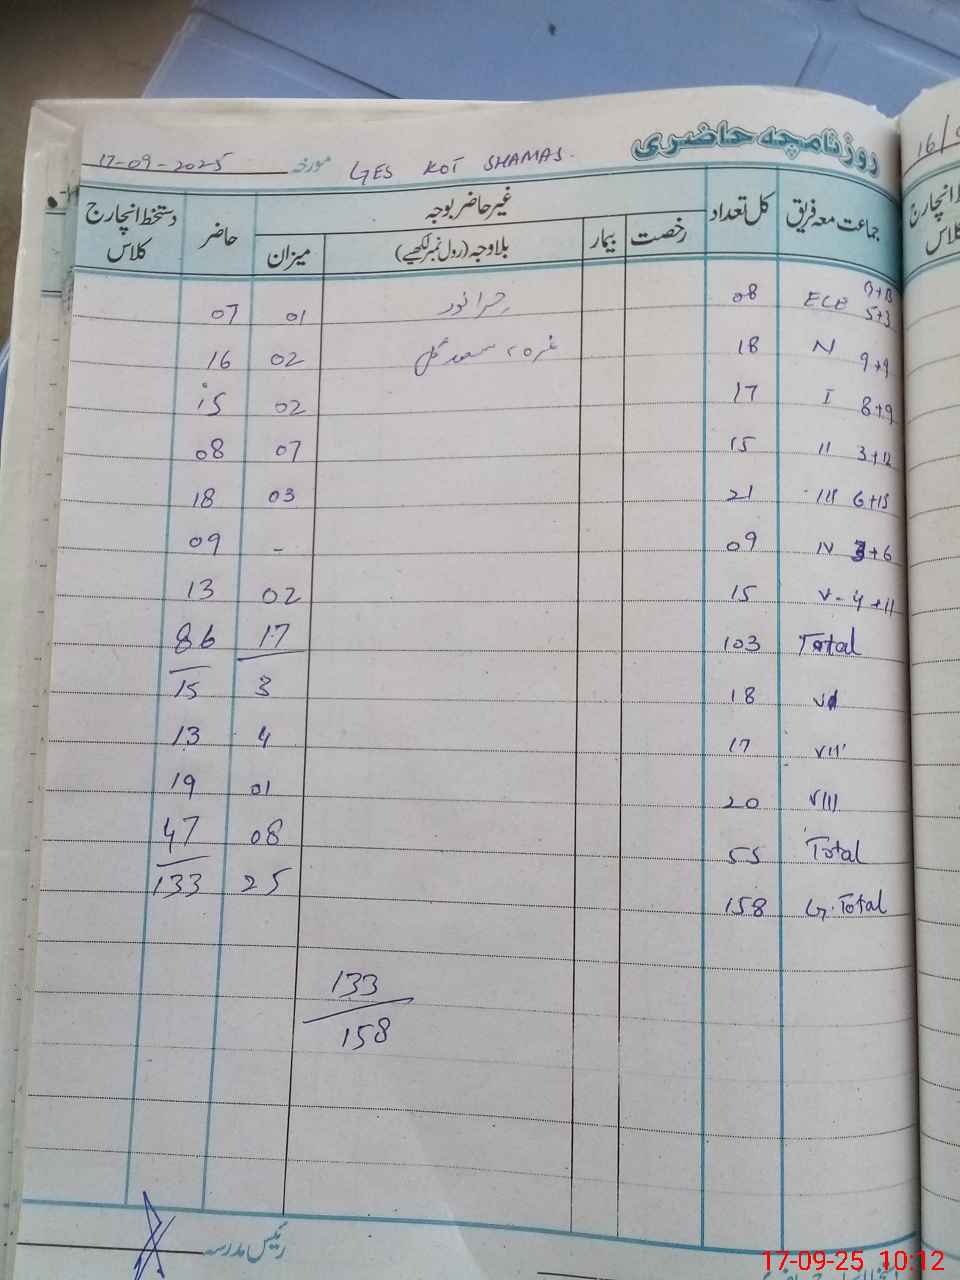 روزنامچہ حاضری
GES KOT SHAMAS.
مورخہ 17-09-2025
جماعت معہ فریق کل تعداد غیر حاضر بوجہ حاضر دستخط انچارج کلاس
رخصت بیمار بلاوجہ (رول نمبر لکھیے) میزان
ECE 5+3 08 01 07
N 9+9 18 02 16
I 8+9 17 02 15
II 3+12 15 07 08
III 6+15 21 03 18
IV 3+6 09 - 09
V - 4+11 15 02 13
Total 103 17 86
VI 18 3 15
VII 17 4 13
VIII 20 01 19
Total 55 08 47
G.Total 158 25 133
133
158
رئیس مدرسہ
16/
17-09-25 10:12